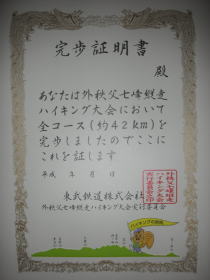 完歩証明書
殿
あなたは外秩父七峰縦走
ハイキング大会において
全コース(約42km)を
完歩しましたのでここに
これを証します
平成 年 月 日
東武鉄道株式会社
外秩父七峰縦走ハイキング大会実行委員会
外秩父七峰縦走
ハイキング大会
実行委員会之印